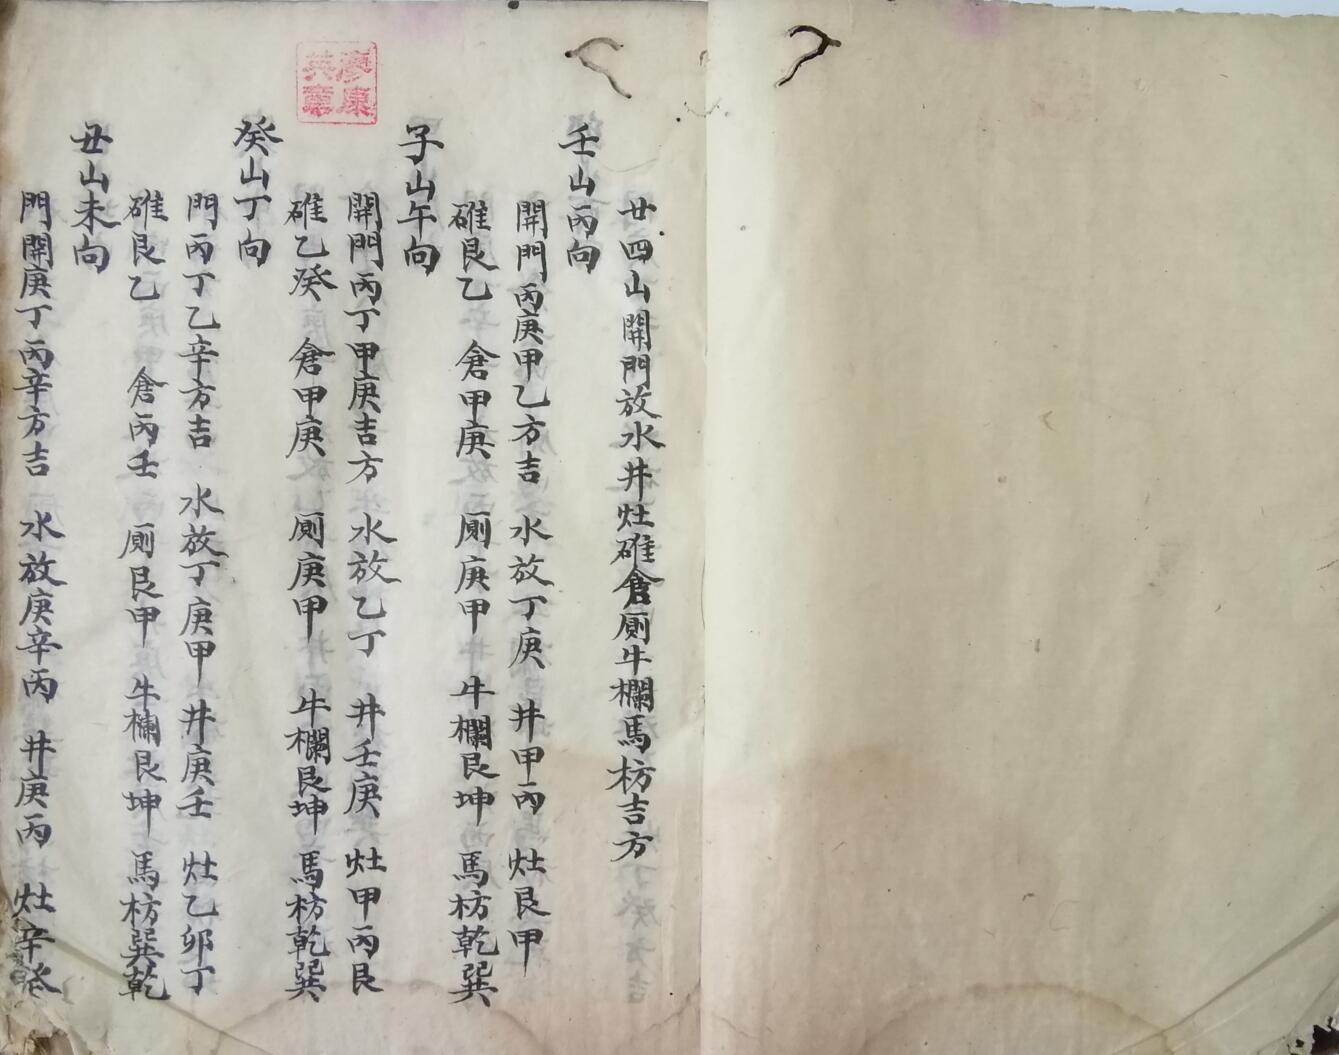 廿四山開門放水井灶碓倉厠牛欄馬枋吉方
壬山丙向
開門丙庚甲乙方吉 水放丁庚 井甲丙 灶艮甲
碓艮乙 倉甲庚 厠庚甲 牛欄艮坤 馬枋乾巽
子山午向
開門丙丁甲庚吉方 水放乙丁 井壬庚 灶甲丙艮
碓乙癸 倉甲庚 厠庚甲 牛欄艮坤 馬枋乾巽
廖康
英章
癸山丁向
門丙丁乙辛方吉 水放丁庚甲 井庚壬 灶乙卯丁
碓艮乙 倉丙壬 厠艮甲 牛欄艮坤 馬枋巽乾
丑山未向
門開庚丁丙辛方吉 水放庚辛丙 井庚丙 灶辛癸